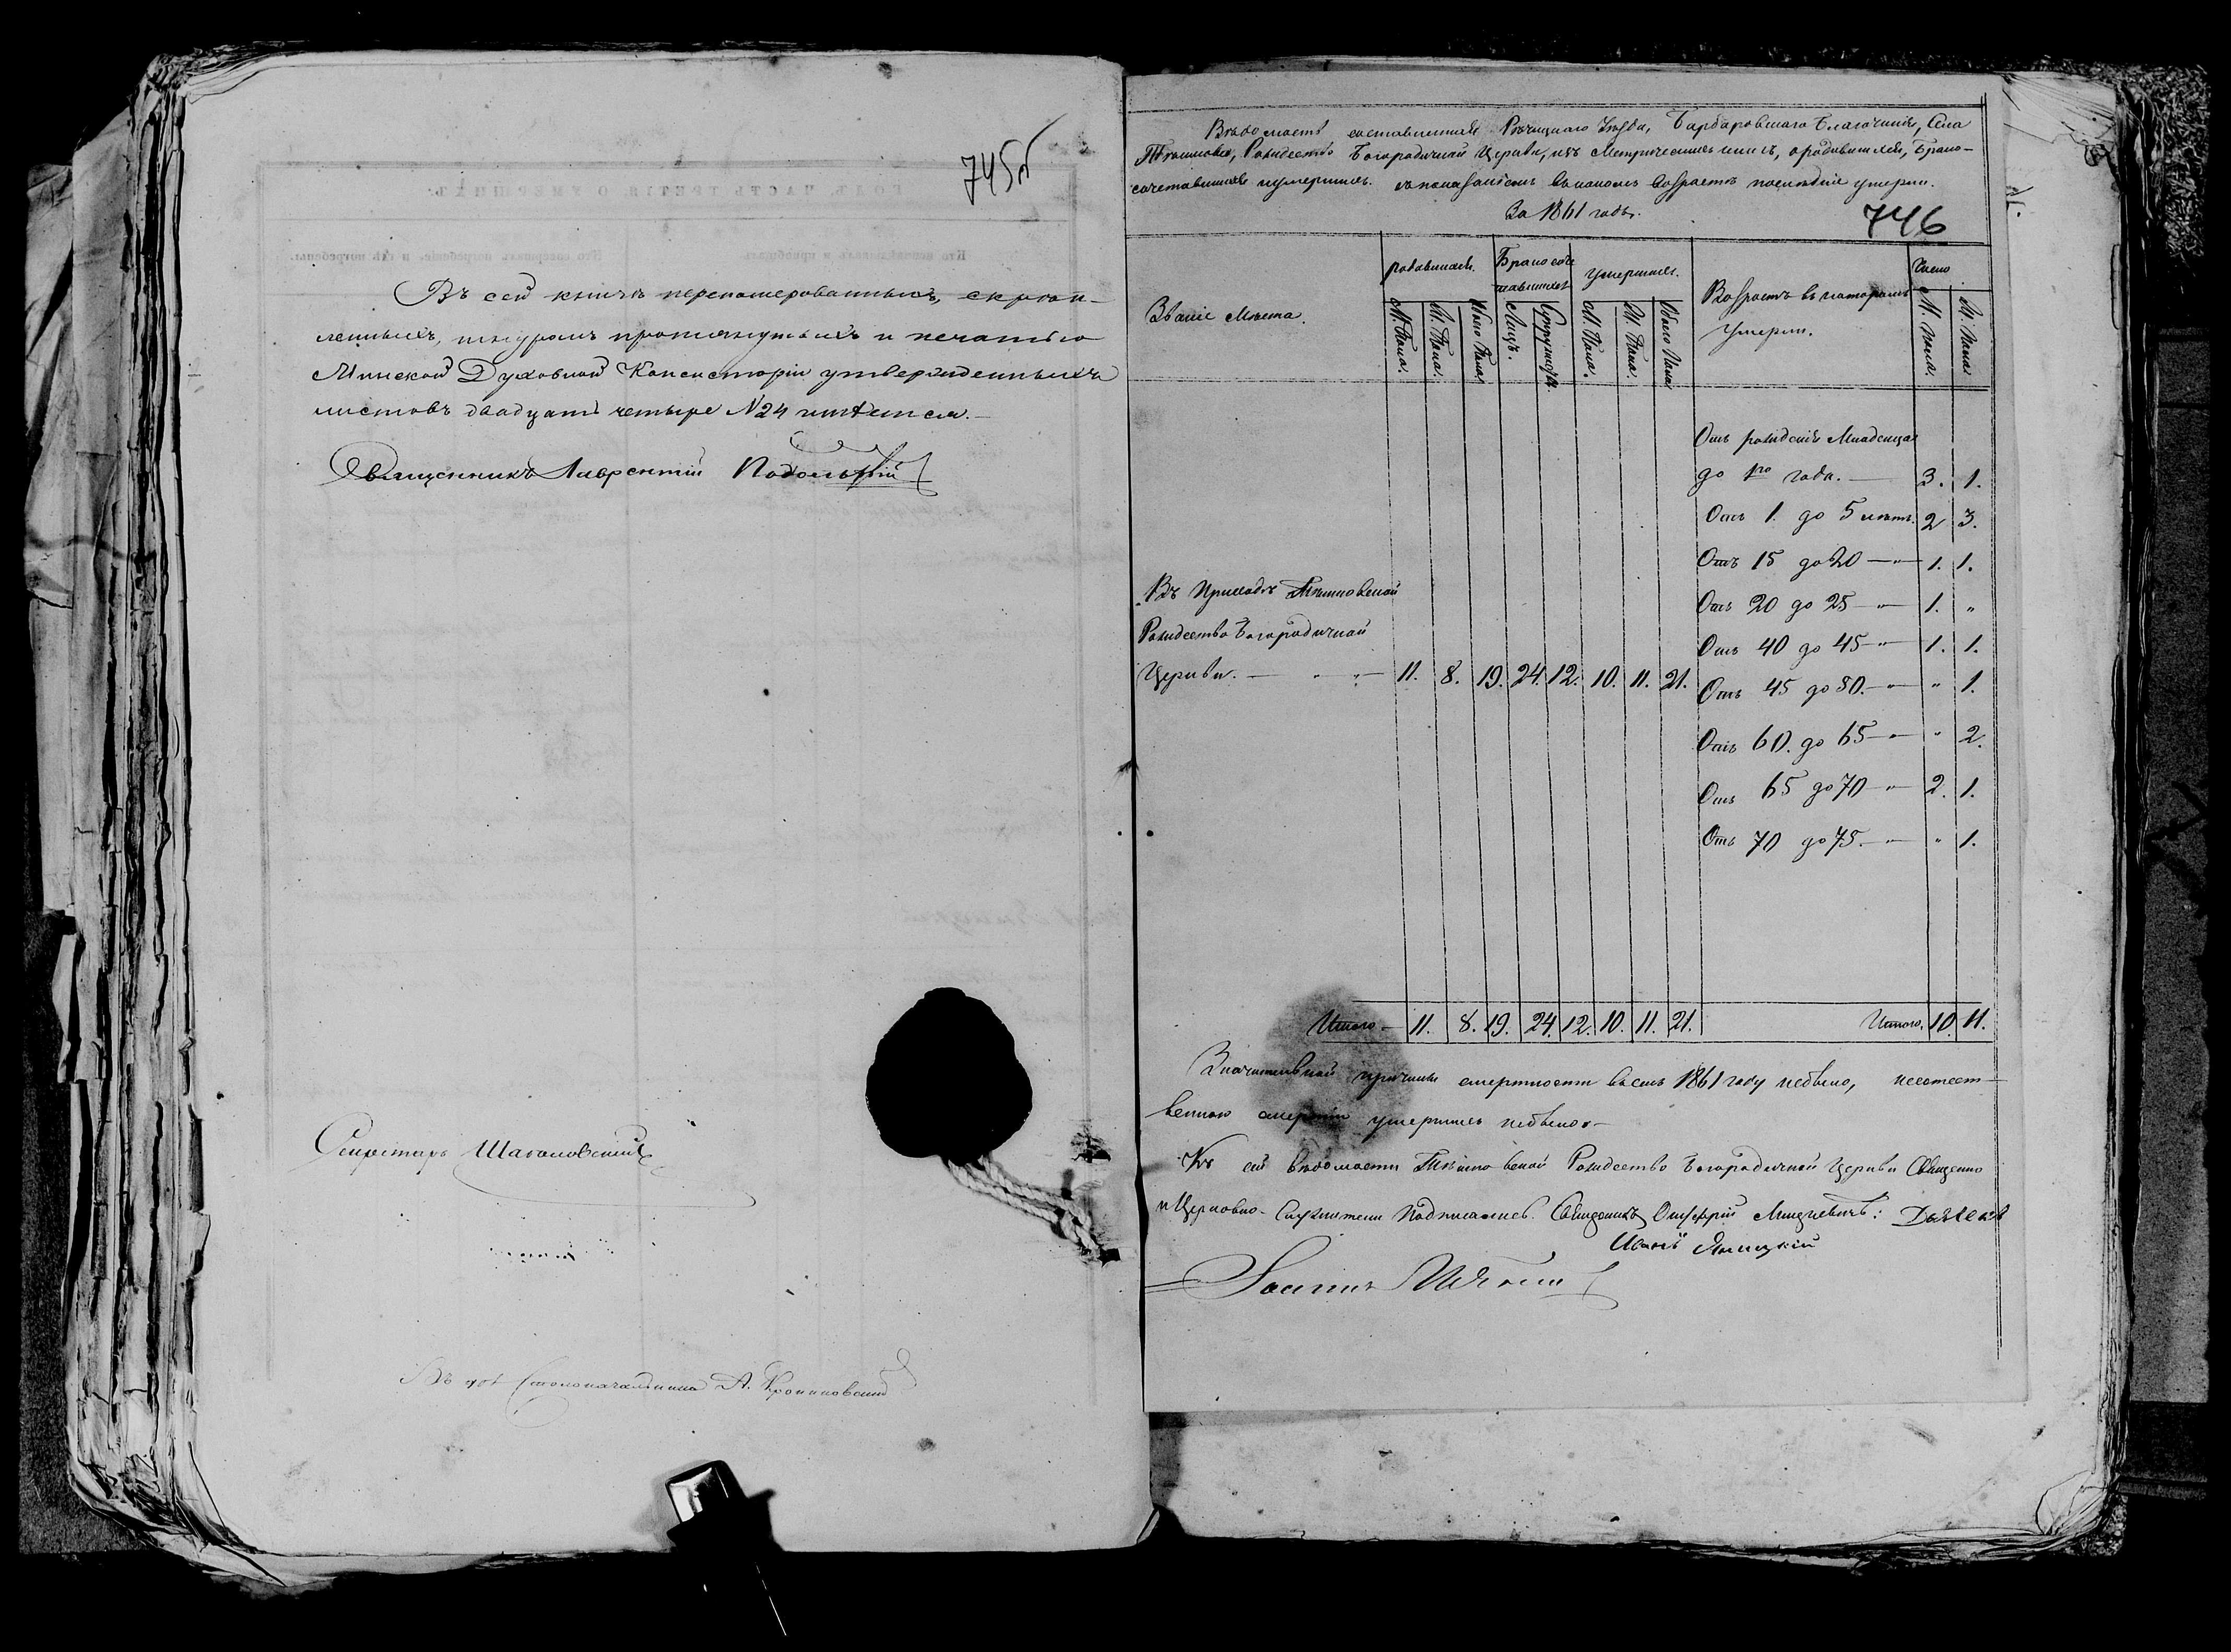 745об
Въ сей книгѣ перенумерованныхъ, скрѣп-
ленныхъ, шнуромъ протянутыхъ и печатью
Минской Духовной Консисторіи утвержденныхъ
листовъ двадцать четыре №24 имѣется.
Священникъ Лаврентій Подольскій
Секретарь
Столоначальника А.
Вѣдомость составленная Рѣчицкаго Уѣзда, Барбаровскаго Благочинія, Села
Рождество Богородичной Церкви, изъ Метрическихъ книгъ, о родившихся, Брако-
сочетавшихся и умершихъ. съ показаніемъ въ какомъ возрастѣ послѣдніе умерли.
За 1861 годъ.
746
Званіе Мѣста.
родившихся.
Бракосоче
тавшихся
умершихъ.
Возрастъ въ которомъ
умерли.
Число
М. Пола.
Ж. Пола.
Обоего Пола
Лицъ.
Супружествъ.
М. Пола.
Ж. Пола.
Обоего Пола
М. Пола.
Ж. Пола
Отъ рожденія Младенца
до 1го года. — 3. 1.
Отъ 1. до 5 лѣтъ. 2 3.
Отъ 15 до 20 —"— 1. 1.
Отъ 20 до 25 —"— 1. "
Отъ 40 до 45 —"— 1. 1.
Отъ 45 до 50. —"— " 1.
Отъ 60. до 65 —"— " 2.
Отъ 65 до 70 —"— 2. 1.
Отъ 70 до 75. —"— " 1.
Въ Приходѣ
Рождество Богородичной
Церкви. — 11. 8. 19. 24. 12. 10. 11. 21.
Итого — 11. 8. 19. 24. 12. 10. 11. 21. Итого. 10. 11.
Значительной причины смертности въ семъ 1861 году небыло, неестест-
венною смертію умершихъ небыло.—
Къ сей вѣдомости Рождество Богородичной Церкви Священно
и Церковно-Служители Подписались. Священникъ Онуфрій Мицкевичъ: Дьячекъ
Иванъ